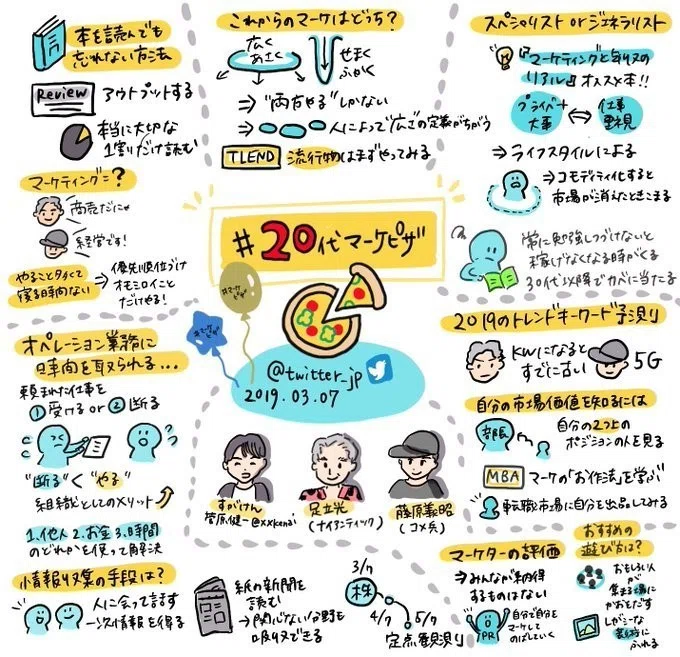 本を読んでも
忘れない方法
Review
アウトプットする
本当に大切な
1割りだけ読む
マーケティング=?
商売だにゃ
経営です!
やること多くて
寝る時間ない
⇒ 優先順位づけ
オモシロイこと
だけやる!
これからのマーケはどっち?
広く
あさく
せまく
ふかく
⇒ "両方やる"しかない
⇒ 人によって"広さ"の定義がちがう
TLEND
流行物はまずやってみる
スペシャリスト or ジェネラリスト
オススメ本!!
プライベート
大事
⇔
仕事
重視
⇒ ライフスタイルによる
⇒ コモディティ化すると
市場が消えたときこまる
常に勉強しつづけないと
稼げなくなる時がくる
30代以降でカベに当たる
#20代マーケピザ
#マーケ
ピザ
#マーケピザ
@twitter_jp
2019.03.07
オペレーション業務に
時間を取られる...
頼まれた仕事を
①受ける or ②断る
"断る" < "やる"
組織としてのメリット
1.他人 2.お金 3.時間
のどれかを使って解決
すがけん
菅原健一@xxkenai
足立光
(ナイアンティック)
藤原義昭
(コメ兵)
2019のトレンドキーワード予測
KWになると
すでに古い
5G
自分の市場価値を知るには
部長
自分の2つ上の
ポジションの人を見る
MBA
マーケの「お作法」を学ぶ
転職市場に自分を出品してみる
情報収集の手段は?
人に会って話す
一次情報を得る
紙の新聞を
読む
→関心ない分野も
吸収できる
3/7
株
4/7
5/7
定点観測
マーケターの評価
⇒ みんなが納得
するものはない
PR
自分で自分を
マーケして
のばしていく
おすすめの
遊び方は?
おもしろい人が
集まる場に
かおをだす
レガシーな
芸術に
ふれる